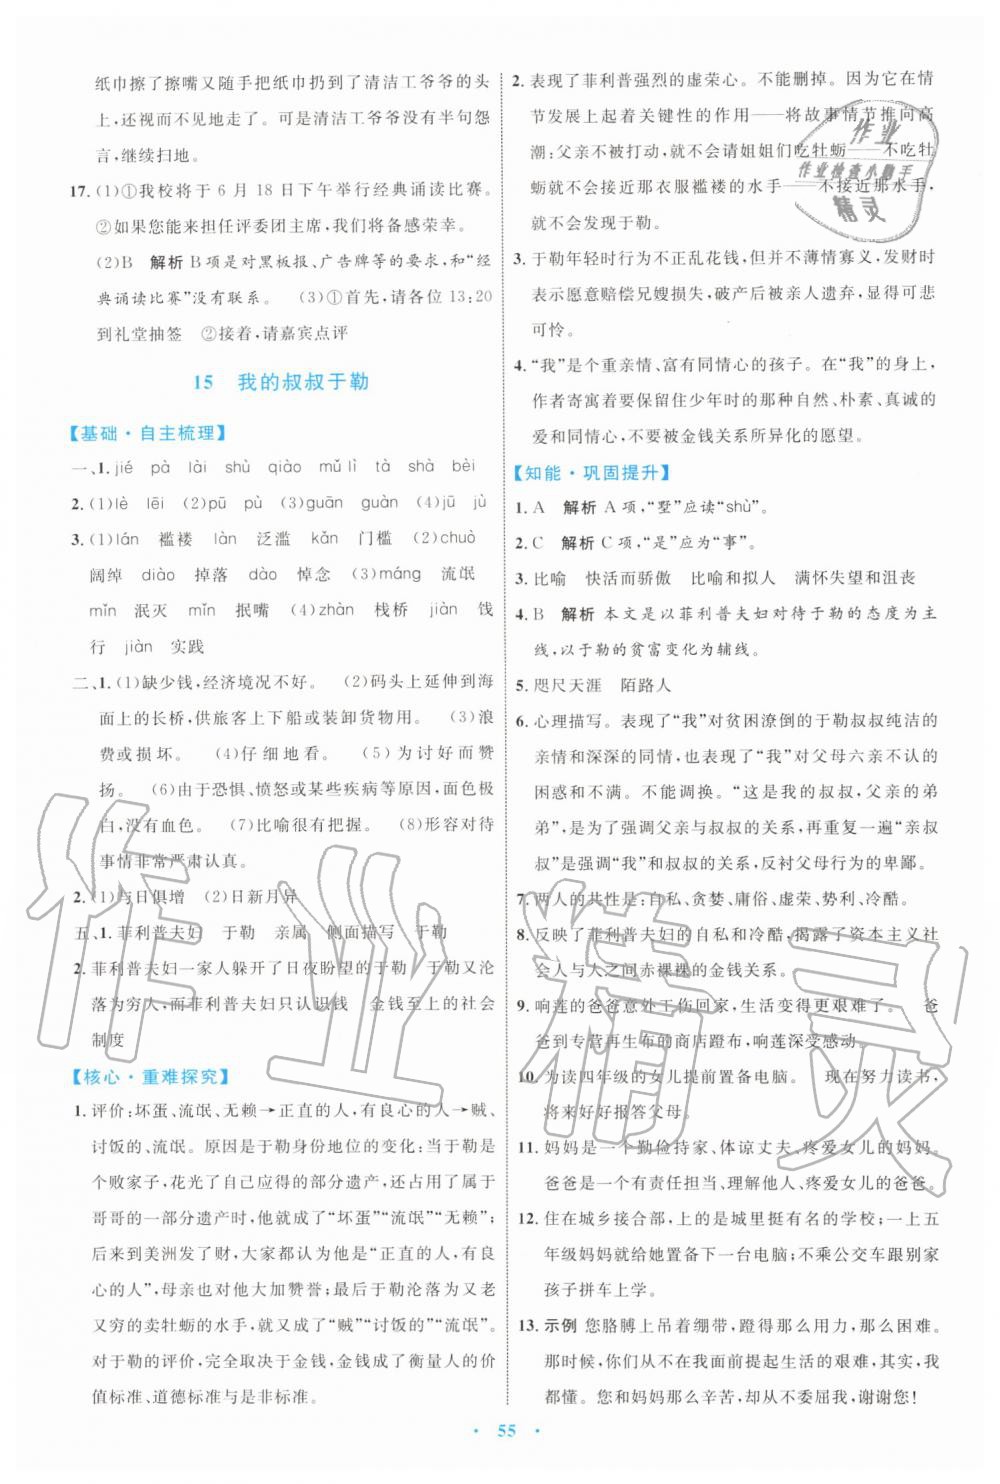 纸巾擦了擦嘴又随手把纸巾扔到了清洁工爷爷的头
上,还视而不见地走了。可是清洁工爷爷没有半句怨
言,继续扫地。
17. (1)①我校将于 6 月 18 日下午举行经典诵读比赛。
②如果您能来担任评委团主席,我们将备感荣幸。
(2)B 解析 B项是对黑板报、广告牌等的要求,和“经
典诵读比赛”没有联系。 (3)①首先,请各位 13:20
到礼堂抽签 ②接着,请嘉宾点评
15 我的叔叔于勒
【基础·自主梳理】
一、1. jié pà lài shù qiào mǔ lì tà shà bèi
2. (1)lè lēi (2)pū pù (3)guān guàn (4)jū jù
3. (1)lán 褴褛 làn 泛滥 kǎn 门槛 (2)chuò
阔绰 diào 掉落 dào 悼念 (3)máng 流氓
mǐn 泯灭 mǐn 抿嘴 (4)zhàn 栈桥 jiàn 饯
行 jiàn 实践
二、1. (1)缺少钱,经济境况不好。 (2)码头上延伸到海
面上的长桥,供旅客上下船或装卸货物用。 (3)浪
费或损坏。 (4)仔细地看。 (5)为讨好而赞
扬。 (6)由于恐惧、愤怒或某些疾病等原因,面色极
白,没有血色。 (7)比喻很有把握。 (8)形容对待
事情非常严肃认真。
2. (1)与日俱增 (2)日新月异
五、1. 菲利普夫妇 于勒 亲属 侧面描写 于勒
2. 菲利普夫妇一家人躲开了日夜盼望的于勒 于勒又沦
落为穷人,而菲利普夫妇只认识钱 金钱至上的社会
制度
【核心·重难探究】
1. 评价:坏蛋、流氓、无赖→正直的人,有良心的人→贼、
讨饭的、流氓。原因是于勒身份地位的变化:当于勒是
个败家子,花光了自己应得的部分遗产,还占用了属于
哥哥的一部分遗产时,他就成了“坏蛋”“流氓”“无赖”;
后来到美洲发了财,大家都认为他是“正直的人,有良
心的人”,母亲也对他大加赞誉;最后于勒沦落为又老
又穷的卖牡蛎的水手,就又成了“贼”“讨饭的”“流氓”。
对于勒的评价,完全取决于金钱,金钱成了衡量人的价
值标准、道德标准与是非标准。
2. 表现了菲利普强烈的虚荣心。不能删掉。因为它在情
节发展上起着关键性的作用——将故事情节推向高
潮:父亲不被打动,就不会请姐姐们吃牡蛎——不吃牡
蛎就不会接近那衣服褴褛的水手——不接近那水手,
就不会发现于勒。
3. 于勒年轻时行为不正乱花钱,但并不薄情寡义,发财时
表示愿意赔偿兄嫂损失,破产后被亲人遗弃,显得可悲
可怜。
4. “我”是个重亲情、富有同情心的孩子。在“我”的身上,
作者寄寓着要保留住少年时的那种自然、朴素、真诚的
爱和同情心,不要被金钱关系所异化的愿望。
【知能·巩固提升】
1. A 解析 A 项,“墅”应读“shù”。
2. C 解析 C 项,“是”应为“事”。
3. 比喻 快活而骄傲 比喻和拟人 满怀失望和沮丧
4. B 解析 本文是以菲利普夫妇对待于勒的态度为主
线,以于勒的贫富变化为辅线。
5. 咫尺天涯 陌路人
6. 心理描写。表现了“我”对贫困潦倒的于勒叔叔纯洁的
亲情和深深的同情,也表现了“我”对父母六亲不认的
困惑和不满。不能调换。“这是我的叔叔,父亲的弟
弟”,是为了强调父亲与叔叔的关系,再重复一遍“亲叔
叔”是强调“我”和叔叔的关系,反衬父母行为的卑鄙。
7. 两人的共性是:自私、贪婪、庸俗、虚荣、势利、冷酷。
8. 反映了菲利普夫妇的自私和冷酷,揭露了资本主义社
会人与人之间赤裸裸的金钱关系。
9. 响莲的爸爸意外工伤回家,生活变得更艰难了。 爸
爸到专营再生布的商店蹬布,响莲深受感动。
10. 为读四年级的女儿提前置备电脑。 现在努力读书,
将来好好报答父母。
11. 妈妈是一个勤俭持家、体谅丈夫、疼爱女儿的妈妈。
爸爸是一个有责任担当、理解他人、疼爱女儿的爸爸。
12. 住在城乡接合部,上的是城里挺有名的学校;一上五
年级妈妈就给她置备下一台电脑;不乘公交车跟别家
孩子拼车上学。
13. 示例 您胳膊上吊着绷带,蹬得那么用力,那么困难。
那时候,你们从不在我面前提起生活的艰难,其实,我
都懂。您和妈妈那么辛苦,却从不委屈我,谢谢您!
55
作业
作业检查小助手
精灵
作业精灵